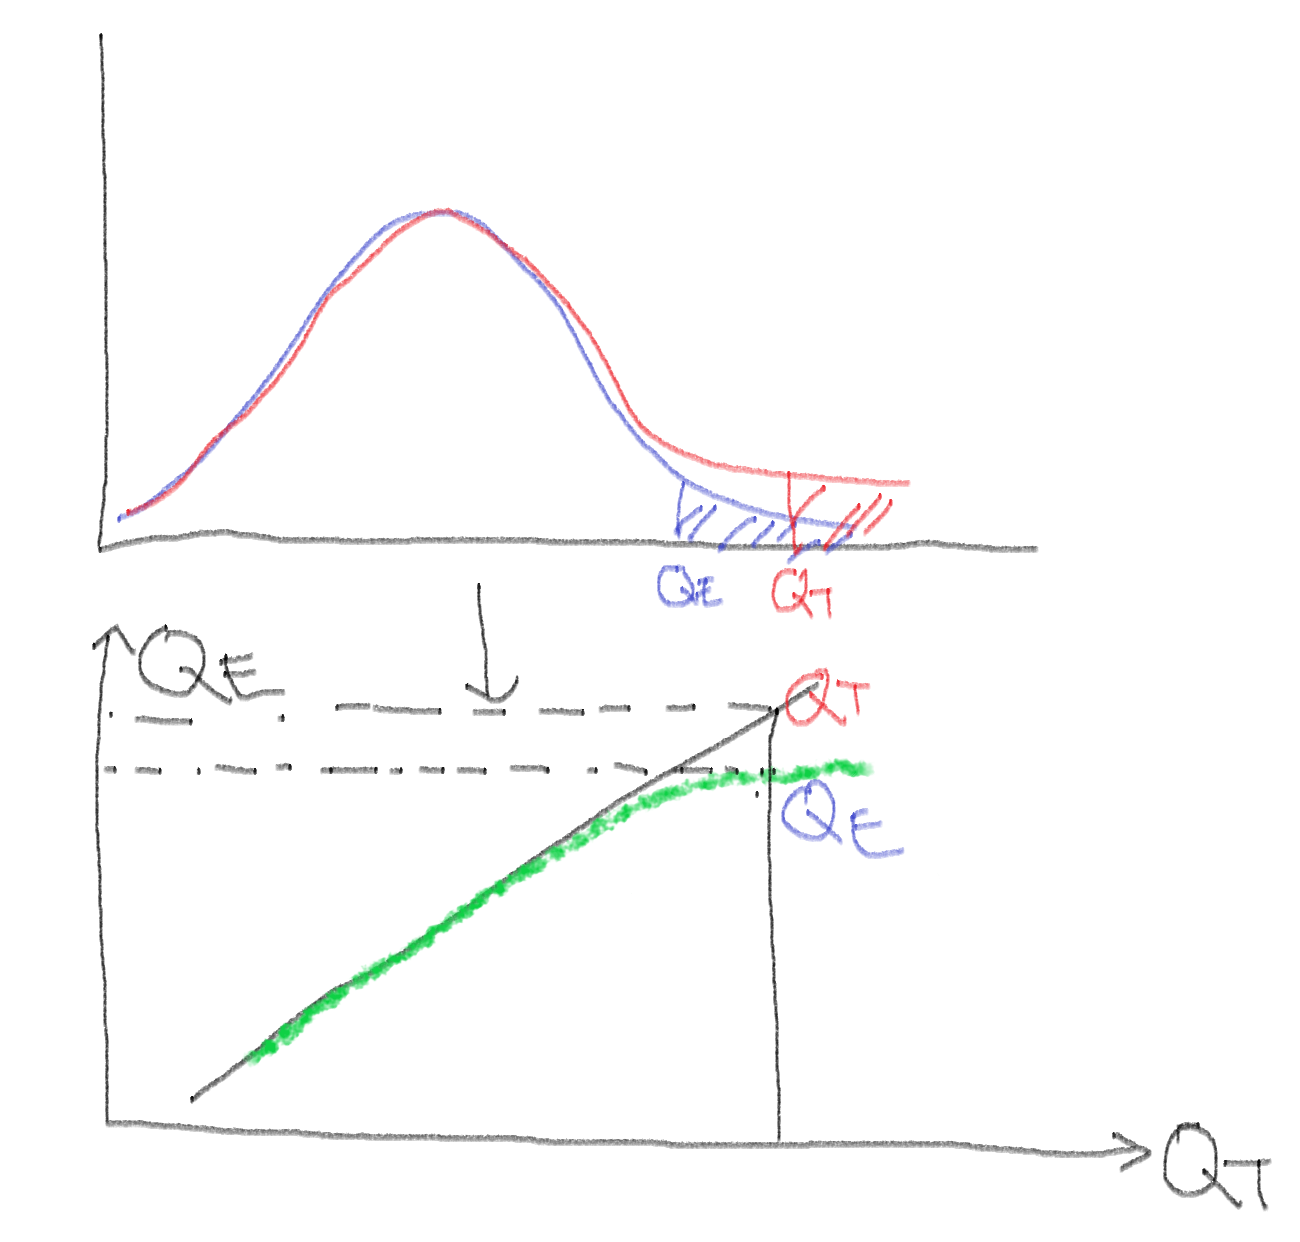 QE QT
QE
QT
QE
QT